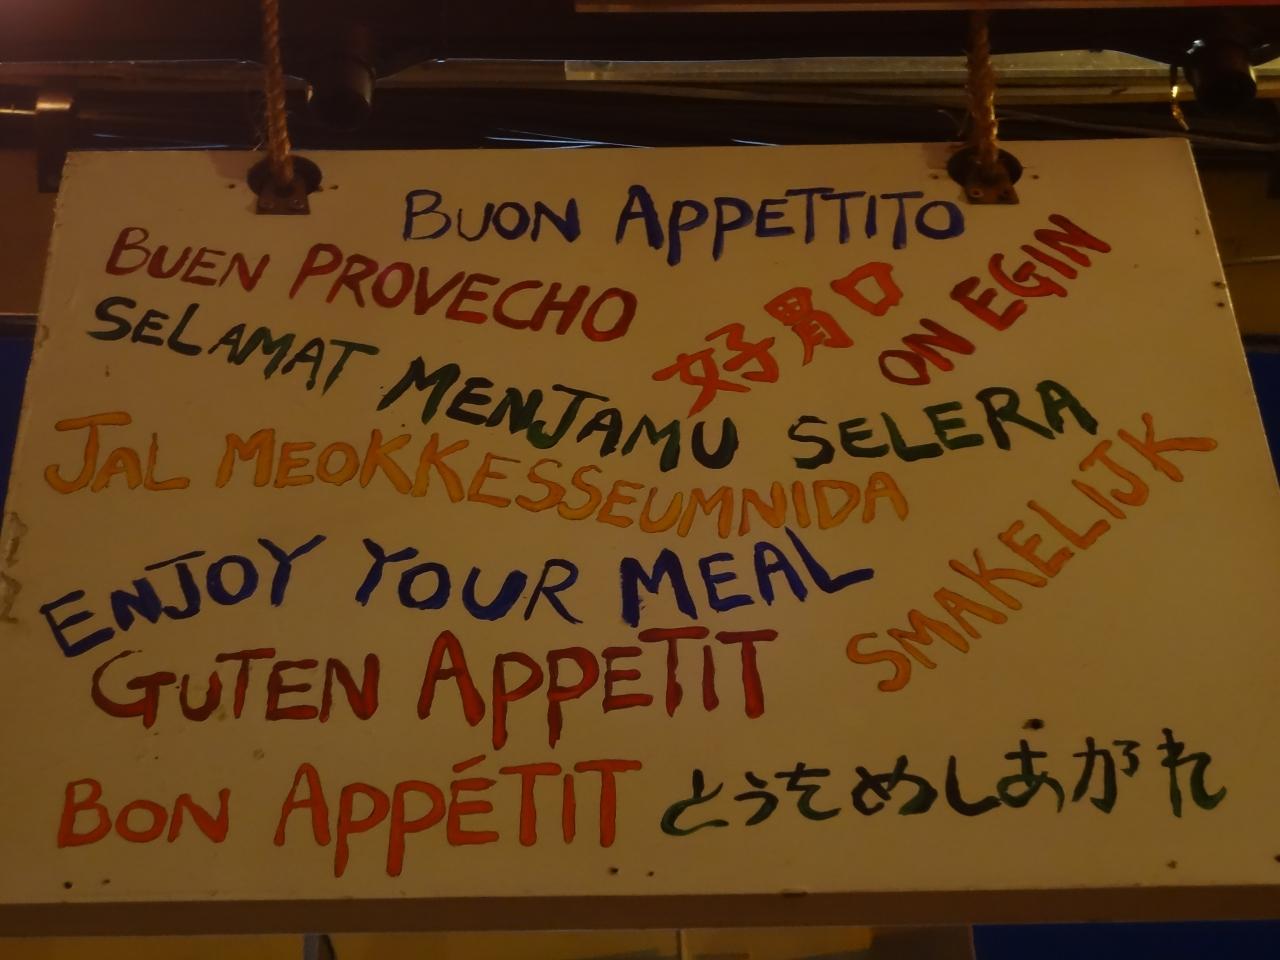 BUON APPETTITO
BUEN PROVECHO
好胃口
ON EGIN
SELAMAT MENJAMU SELERA
JAL MEOKKESSEUMNIDA
SMAKELIJK
ENJOY YOUR MEAL
GUTEN APPETIT
BON APPÉTIT
とうをめしあがれ